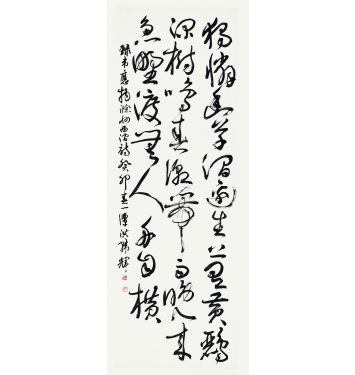 獨憐幽草澗邊生上有黃鸝
深樹鳴春潮帶雨晚來
急野渡無人舟自橫
錄韋應物滁州西澗詩癸卯春